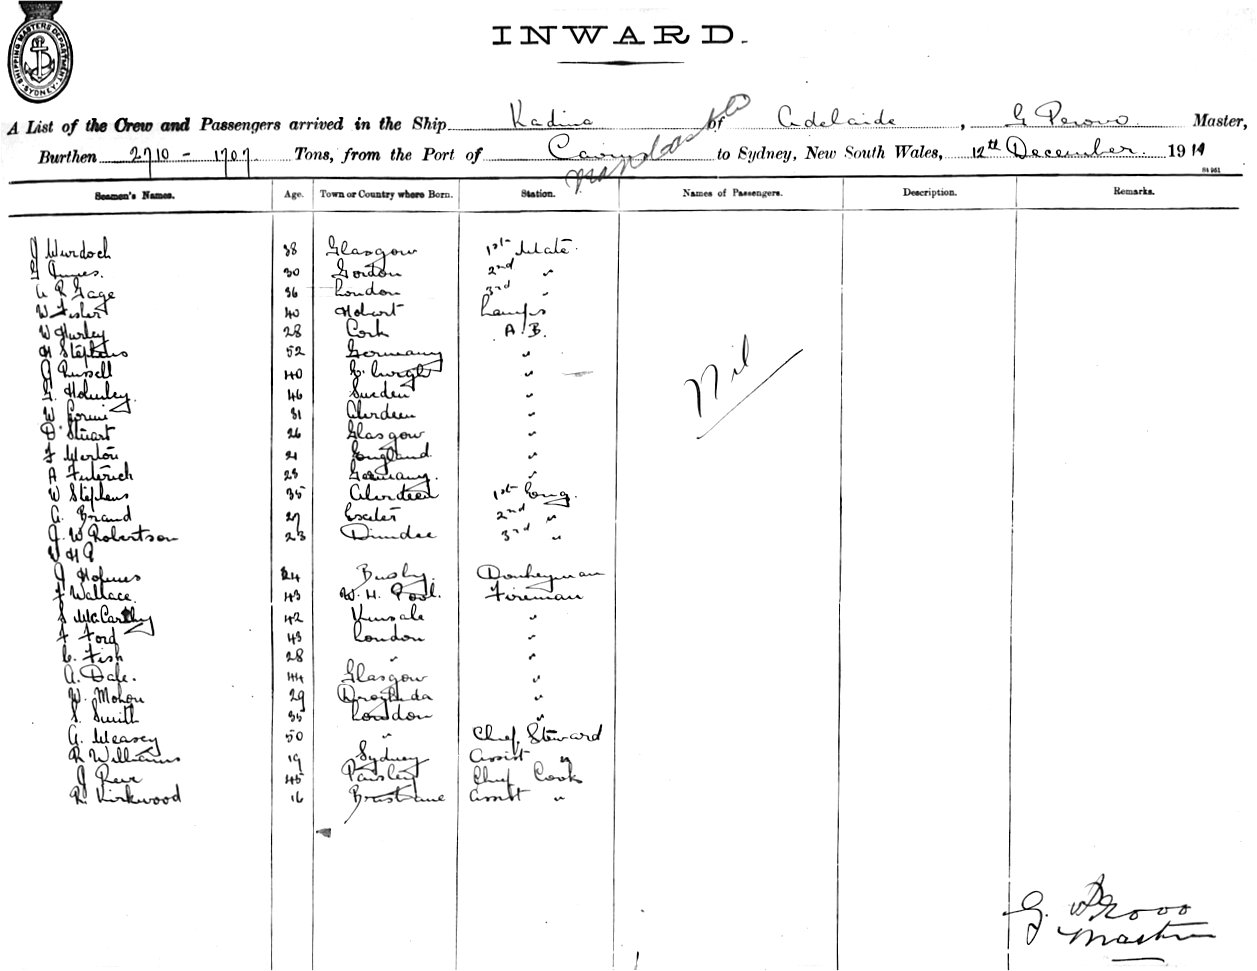 SHIPPING MASTERS DEPARTMENT SYDNEY
INWARD.
A List of the Crew and Passengers arrived in the Ship Kadina of Adelaide, G Master,
Burthen 2710 - 1707 Tons, from the Port of to Sydney, New South Wales, 12th December 1911
Seamen's Names. Age. Town or Country where Born. Station. Names of Passengers. Description. Remarks.
J Murdoch 38 Glasgow 1st Mate.
30 Gordon 2nd "
A R Gage 36 London 3rd "
W Fisher 40 Hobart Lamps
W Hurley 28 Cork A.B.
H Stephens 52 Germany "
J Russell 40 E'burgh "
46 Sweden "
W 31 Aberdeen "
D Stuart 26 Glasgow "
F Merton 21 England "
A 23 Germany. "
W Stephens 35 Aberdeen 1st Eng.
A. Brand 27 Exeter 2nd "
J. W Robertson 23 Dundee 3rd "
W H
J Holmes 24 Busby Donkeyman
F Wallace 43 W. H. Pool. Fireman
S McCarthy 42 Kinsale "
F Ford 43 London "
C. Fish 28 " "
A. Dale. 44 Glasgow "
W. Mohon 29 Drogheda "
S. Smith 35 London "
A. Measey 50 " Chief Steward
R Williams 19 Sydney Assist "
J 45 Paisley Chief Cook
R. Kirkwood 16 Brisbane Assist "
Nil
G.
Master